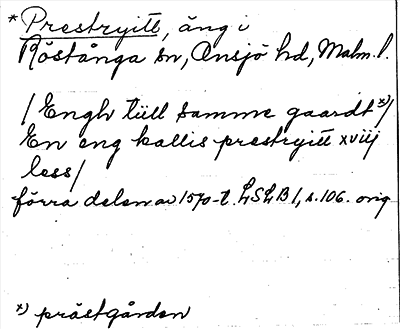 *Prestryitt, äng i
Röstånga sn, Onsjö hd, Malm. l.
/Engh tiill samme gaardt x)/
En eng kallis prestryitt xviij
less/
förra delen av 1570-t. LSLB 1, s. 106. orig
x) prästgården